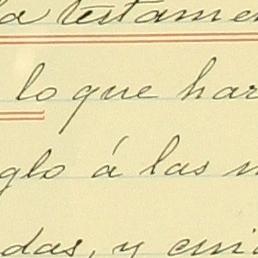 la testamen
lo que har
glo á las n
das, y cui